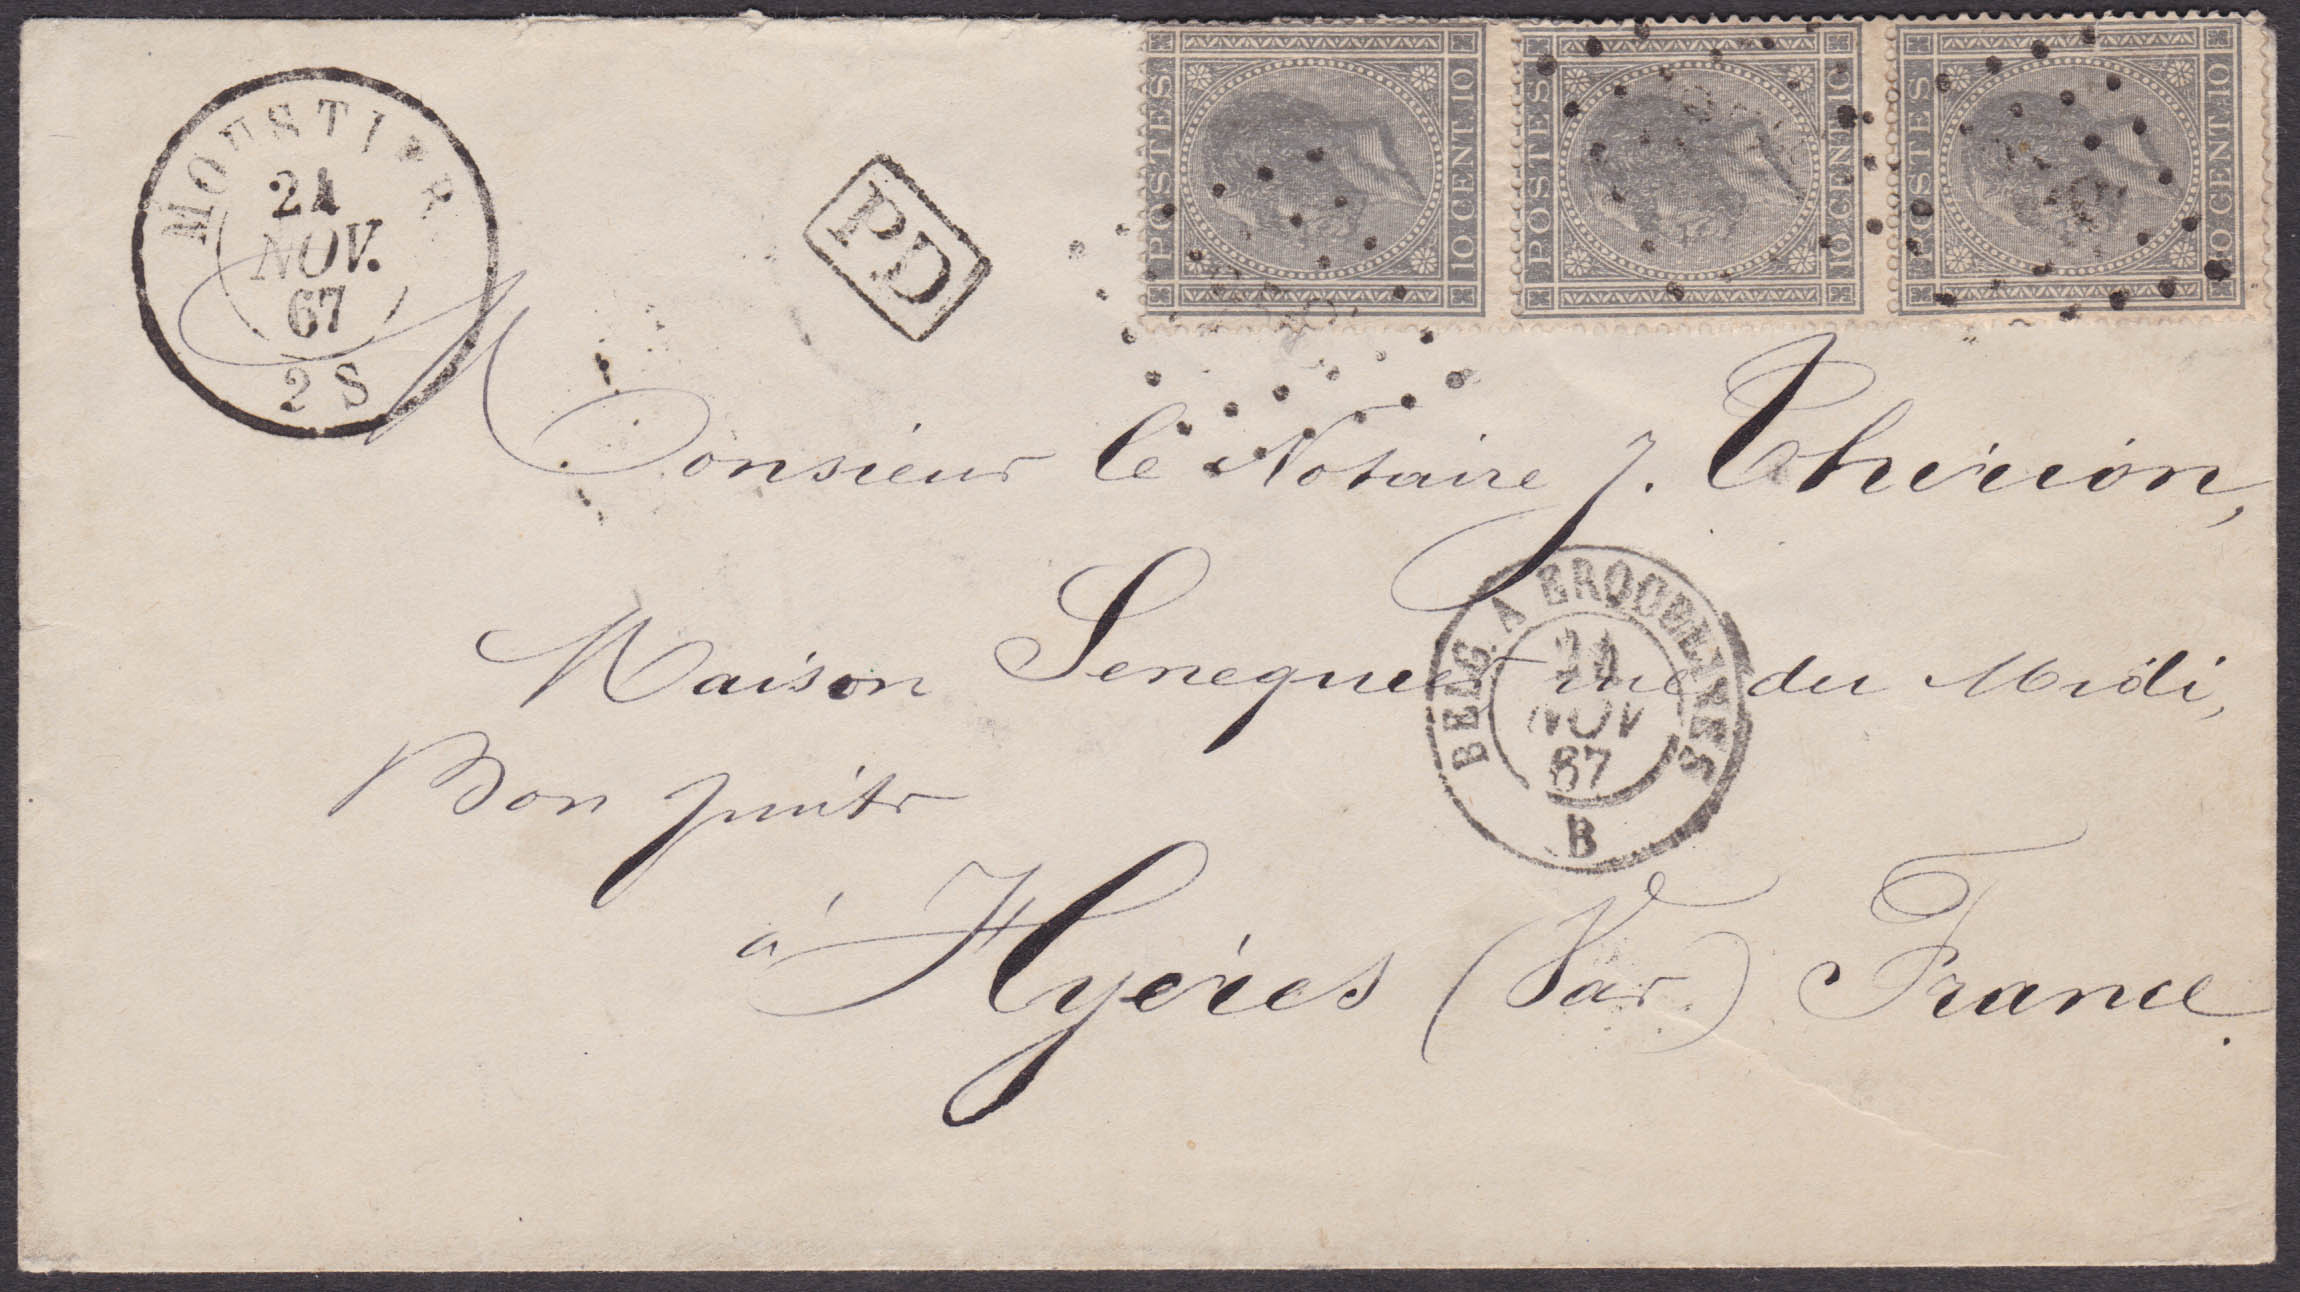 MOUSTIER
24
NOV.
67
2 S
PD
POSTES
10 CENT. 10
POSTES
10 CENT. 10
POSTES
10 CENT. 10
Monsieur le Notaire J. Thirion,
Maison Senequier rue du Midi,
à Hyères (Var.) France.
BELG. A ERQUELINES
24
NOV
67
B